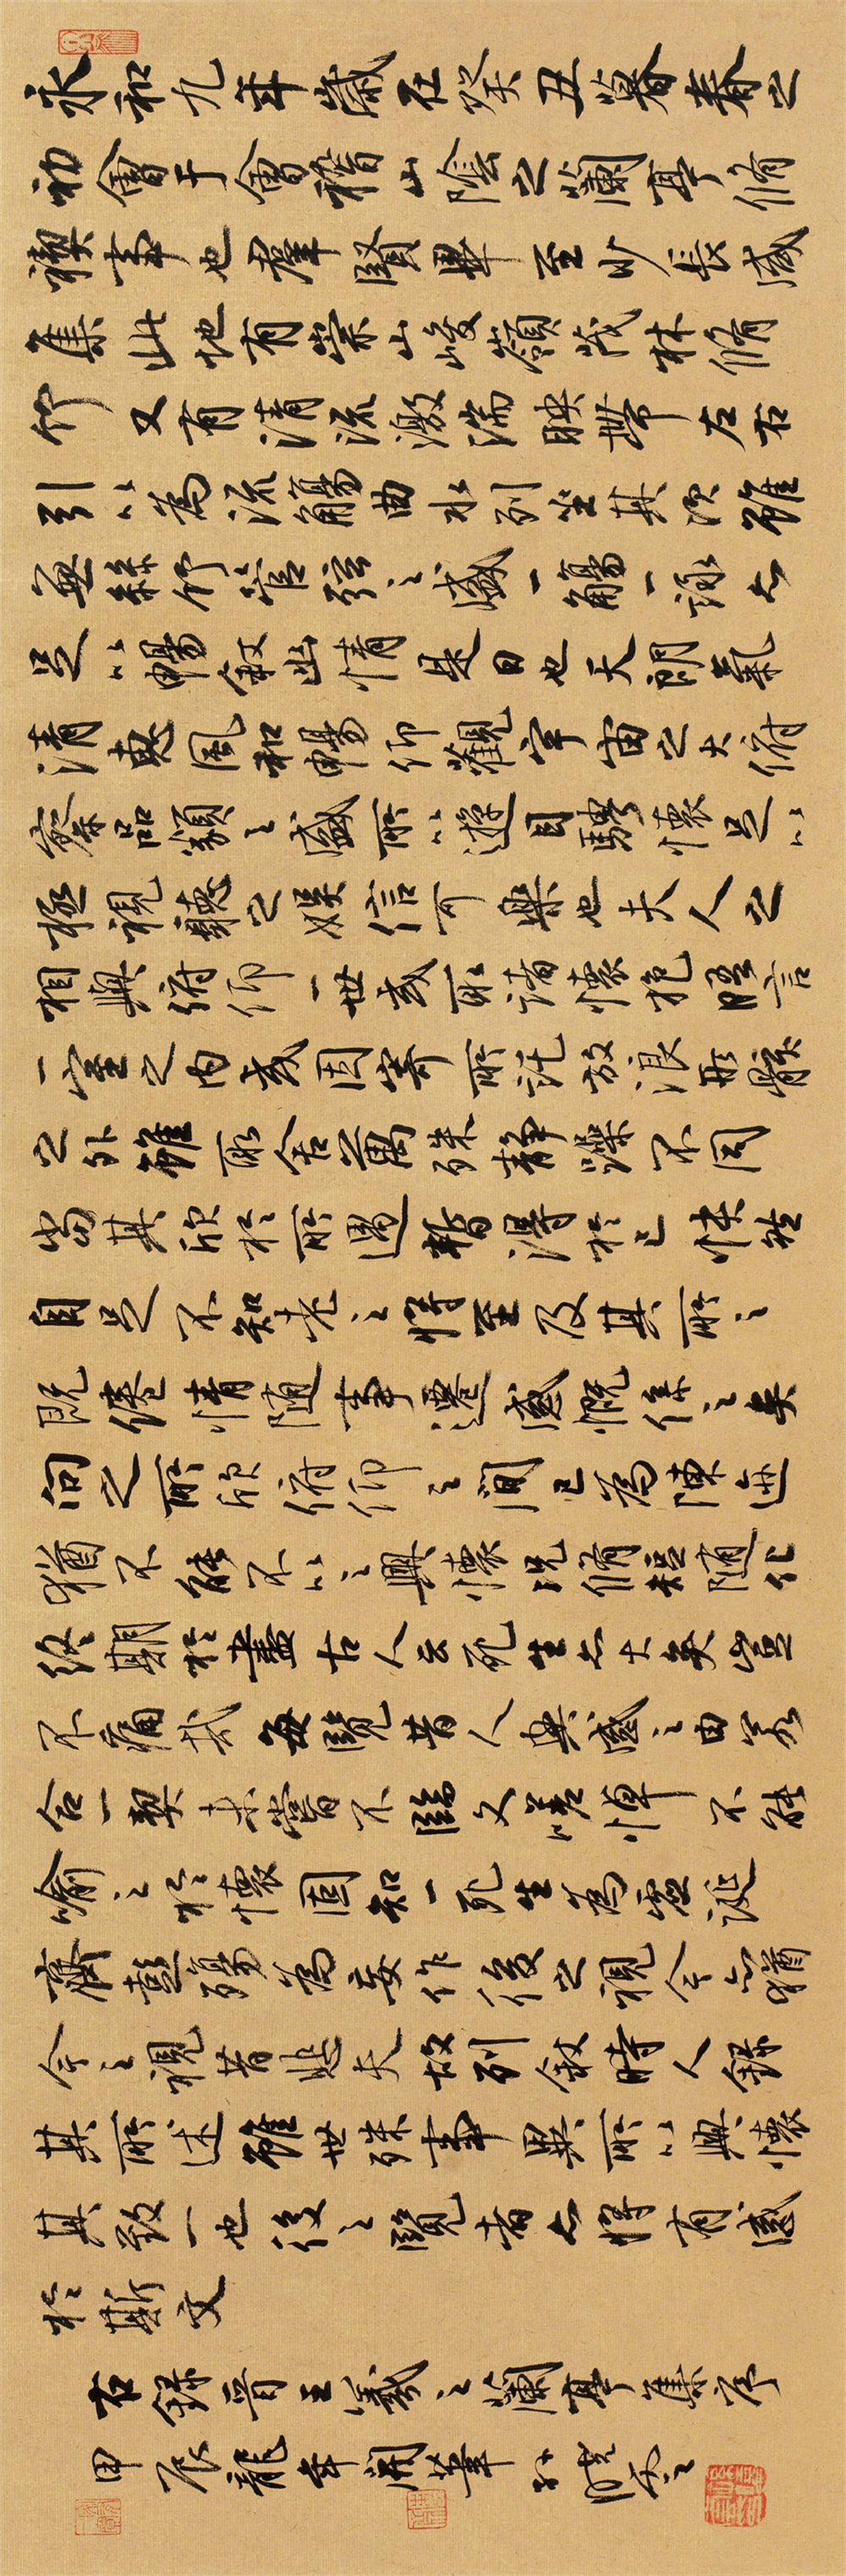 永和九年歲在癸丑暮春之
初會于會稽山陰之蘭亭脩
禊事也群賢畢至少長咸
集此地有崇山峻嶺茂林脩
竹又有清流激湍映帶左右
引以為流觴曲水列坐其次雖
無絲竹管弦之盛一觴一詠亦
足以暢敘幽情是日也天朗氣
清惠風和暢仰觀宇宙之大俯
察品類之盛所以遊目騁懷足以
極視聽之娛信可樂也夫人之
相與俯仰一世或取諸懷抱晤言
一室之內或因寄所託放浪形骸
之外雖取舍萬殊靜躁不同
當其欣於所遇暫得於己快然
自足不知老之將至及其所之
既倦情隨事遷感慨係之矣
向之所欣俯仰之間已為陳迹
猶不能不以之興懷況脩短隨化
終期於盡古人云死生亦大矣豈
不痛哉每覽昔人興感之由若
合一契未嘗不臨文嗟悼不能
喻之於懷固知一死生為虛誕
齊彭殤為妄作後之視今亦猶
今之視昔悲夫故列敘時人錄
其所述雖世殊事異所以興懷
其致一也後之覽者亦將有感
於斯文
右錄晉王羲之蘭亭集序
甲辰龍年開筆